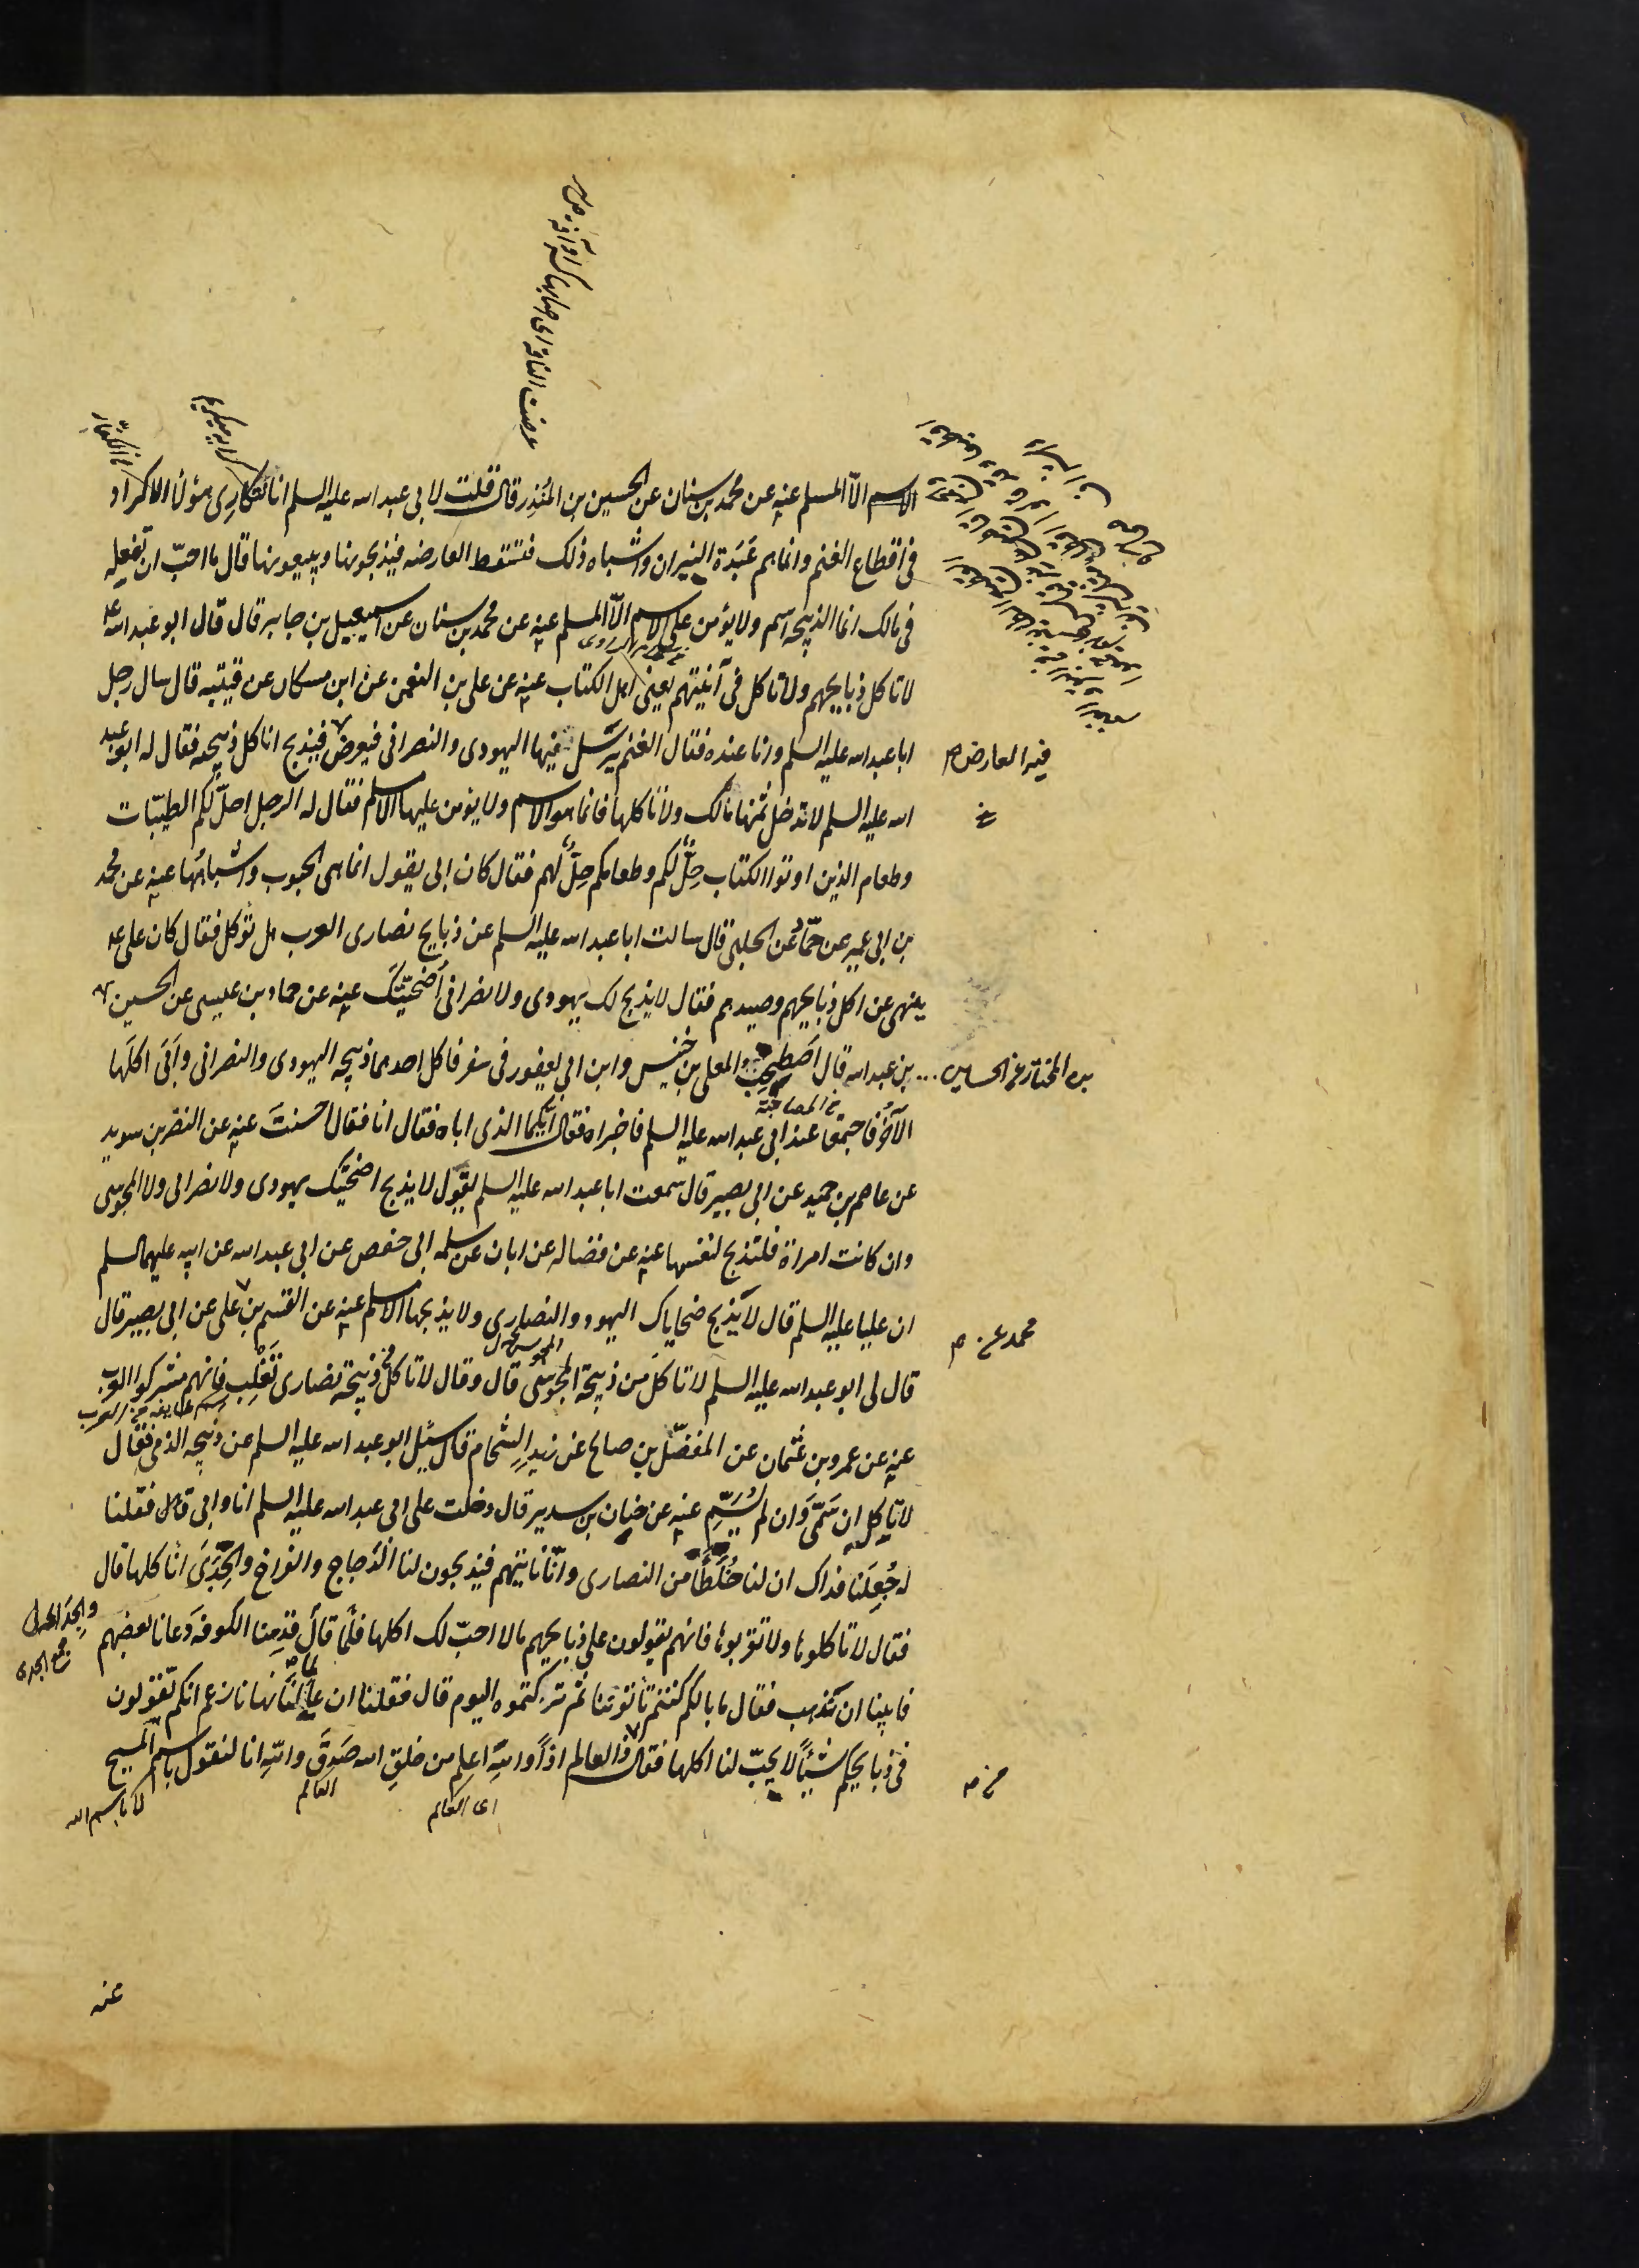 الاسم الّا المسلم عنه عن محمد بن سنان عن الحسين بن المُنذِر قال قلت لابى عبد اسه عليه السلم انا نتكارى هؤلا الاكراد
فى اقطاع الغنم وانما هم عَبَدة النيران واشباه ذلك فتسقط العارضه فيذبحونها ويبيعونها قال ما احبّ ان تفعله
فى مالك انما الذبيحه اسم ولا يؤمن على الاسم الّا المسلم عنه عن محمد بن سنان عن اسمعيل بن جابر قال قال ابو عبد اسه ع
لا تاكل ذبايحهم ولا تاكل فى آنيتهم يعنى اهل الكتاب عنه عن على بن النعمن عن ابن مسكان عن قتيبه قال سال رجل
ابا عبد اسه عليه السلم وانا عنده فقال الغنم يُرسَل فيها اليهودى والنصرانى فيعرض فيذبح اناكل ذبيحه فقال له ابو عبد
فيه العارض
اسه عليه السلم لا تدخل ثمنها مالك ولا تاكلها فانما هو الاسم ولا يؤمن عليها الا مسلم فقال له الرجل احلّ لكم الطيّبات
وطعام الذين اوتوا الكتاب حِلٌّ لكم وطعامكم حِلٌّ لهم فقال كان ابى يقول انما هى الحبوب واشباهُها عنه عن محمد
بن ابى عمير عن حمّاد عن الحلبى قال سالت ابا عبد اسه عليه السلم عن ذبايح نصارى العرب هل تؤكل فقال كان على ع
ينهى عن اكل ذبايحهم وصيدهم فقال لا يذبح لك يهودى ولا نصرانى اُضحيّتكَ عنه عن حماد بن عيسى عن الحسين
بن عبد اسه قال اَصطحب المعلى بن خنيس وابن ابى يعفور فى سفر فاكل احدهما ذبيحه اليهودى والنصرانى واَبَى اكلَها
بن المختار عن الحسين
الآخَرُ فاجتمعا عند ابى عبد اسه عليه السلم فاخبراه فقال ايّكما الذى اباه فقال انا فقال احسنتَ عنه عن النضر بن سويد
عن عاصم بن حميد عن ابى بصير قال سمعت ابا عبد اسه عليه السلم يقول لا يذبح اضحيّتك يهودى ولا نصرانى ولا المجوسى
وان كانت امراة فلتذبح لنفسها عنه عن فضاله عن ابان عن سلمه ابى حفص عن ابى عبد اسه عن ابيه عليهما السلم
ان عليا عليه السلم قال لا يَذبح ضحاياك اليهود والنصارى ولا يذبحها الا مسلم عنه عن القسم بن على عن ابى بصير قال
محمد عن
قال لى ابو عبد اسه عليه السلم لا تاكل من ذبيحة المجوسى قال وقال لا تاكل ذبيحة نصارى تَغْلِب فانهم مشركوا العرب
عنه عن عمرو بن عثمان عن المفضّل بن صالح عن زيد الشحام قال سئل ابو عبد اسه عليه السلم عن ذبيحه الذمى فقال
لا تاكله ان سَمّى وَان لم يُسَمِّ عنه عن حنان بن سدير قال دخلت على ابى عبد اسه عليه السلم انا وابى قال فقلنا
له جُعِلنا فداك ان لنا خُلَطَاً من النصارى وانّا ناتيهم فيذبحون لنا الدّجاج والفراخ والجَدَى اناكلها قال
فقال لا تاكلوها ولا تقربوها فانهم يقولون على ذبايحهم ما لا احبّ لك اكلها فلمّا قال قدِمنا الكوفه دَعانا بعضهم
فابينا ان نذهب فقال ما بالكم كنتم تاتوننا ثم تركتموه اليوم قال فقلنا ان عالمنا نهانا زعم انكم تقولون
فى ذبايحكم شيئاً لا يحبّ لنا اكلها فقال ذا العالم اذاً واللهِ اعلم من خلقِ اسه صَدَقَ واللهِ انا لنقول باسم المسيح
عنه